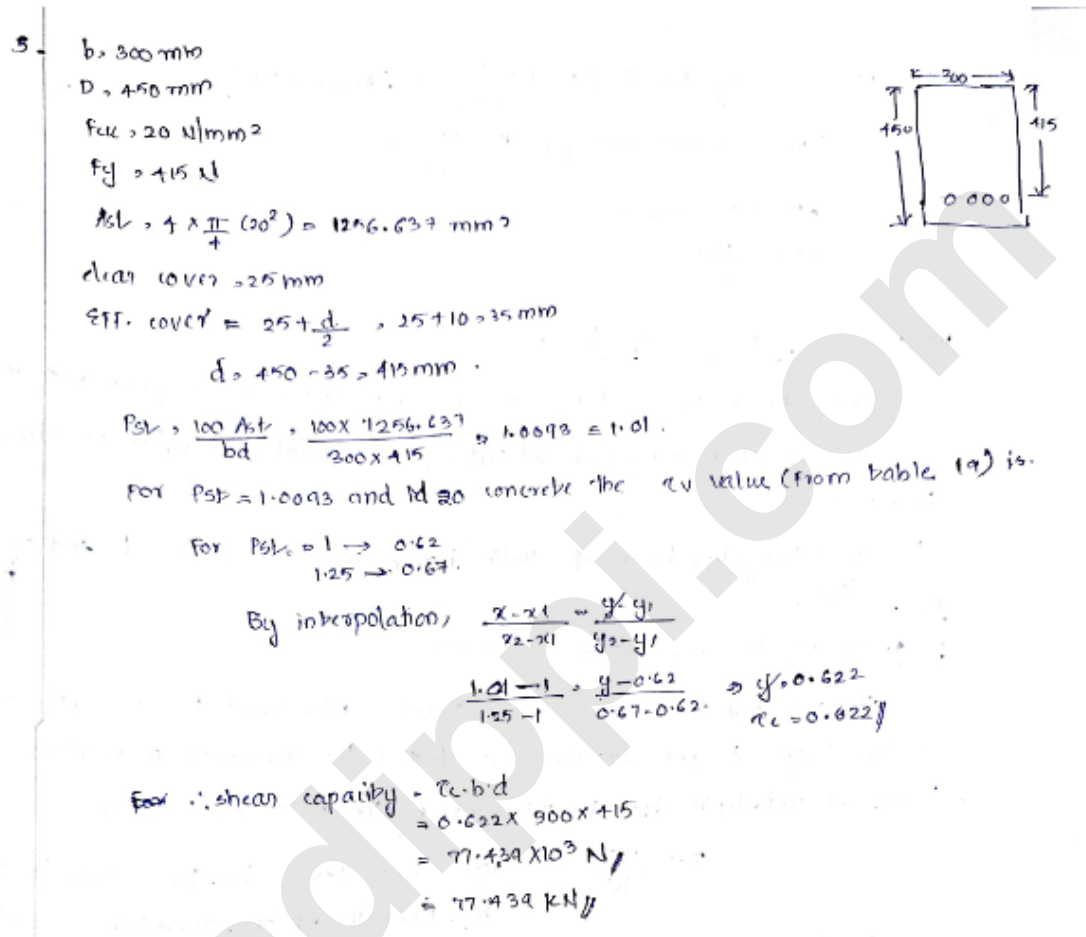 5.
b = 300 mm
D = 450 mm
fck = 20 N/mm2
fy = 415 N
Ast = 4 × π/4 (20²) = 1256.637 mm2
clear cover = 25 mm
Eff. cover = 25 + d/2 = 25 + 10 = 35 mm
d = 450 - 35 = 415 mm.
300
450
415
Pst = 100 Ast / bd = 100 X 1256.637 / 300 x 415 = 1.0093 = 1.01.
For Pst = 1.0093 and M 20 concrete the τv value (from table 19) is.
For Pst. = 1 → 0.62
1.25 → 0.67.
By interpolation, x-x1 / x2-x1 = y-y1 / y2-y1
1.01-1 / 1.25-1 = y-0.62 / 0.67-0.62. ⇒ y = 0.622
τc = 0.622//
∴ shear capacity = τc.b.d
= 0.622 x 300 x 415
= 77.439 X10³ N//
= 77.439 KN//
dippi.com